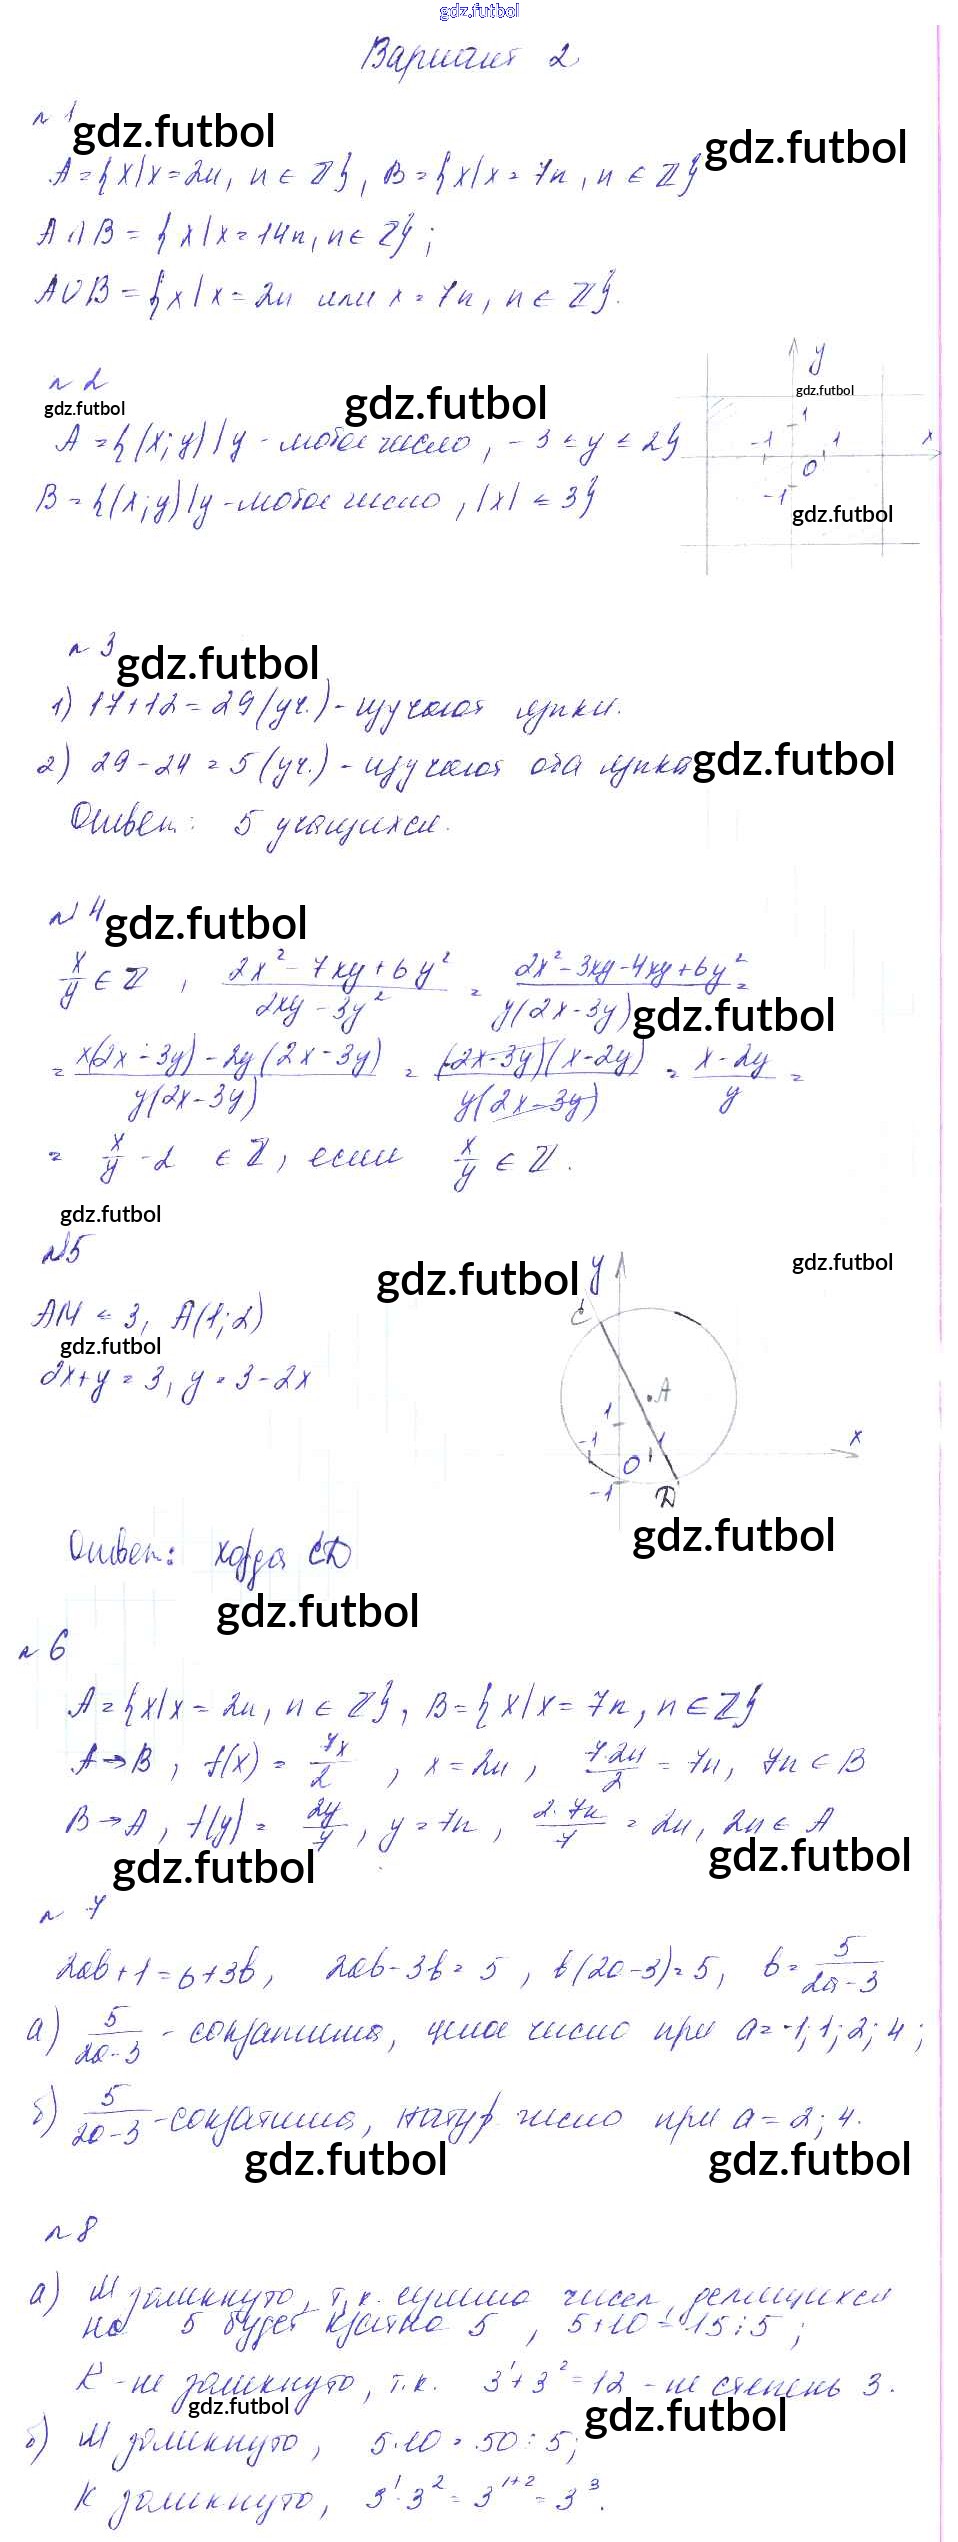 gdz.futbol
Вариант 2
№ 1
gdz.futbol
gdz.futbol
A = {x | x = 2n, n ∈ Z}, B = {x | x = 7n, n ∈ Z}
A ∩ B = {x | x = 14n, n ∈ Z};
A ∪ B = {x | x = 2n или x = 7n, n ∈ Z}.
№ 2
gdz.futbol
gdz.futbol
gdz.futbol
A = {(x; y) | y - любое число, -3 ≤ y ≤ 2}
B = {(x; y) | y - любое число, |x| ≤ 3}
y
1
-1 1 x
0
-1
gdz.futbol
№ 3
gdz.futbol
1) 17 + 12 = 29 (уч.) - изучают языки.
2) 29 - 24 = 5 (уч.) - изучают оба языка
gdz.futbol
Ответ: 5 учащихся.
№ 4
gdz.futbol
x/y ∈ Z, (2x² - 7xy + 6y²)/(2xy - 3y²) = (2x² - 3xy - 4xy + 6y²)/(y(2x - 3y)) =
gdz.futbol
= (x(2x - 3y) - 2y(2x - 3y))/(y(2x - 3y)) = ((2x - 3y)(x - 2y))/(y(2x - 3y)) = (x - 2y)/y =
= x/y - 2 ∈ Z, если x/y ∈ Z.
gdz.futbol
№ 5
gdz.futbol
gdz.futbol
AM ≤ 3, A(1; 2)
gdz.futbol
2x + y = 3, y = 3 - 2x
y
C
A
1
-1 1 x
0
-1 D
gdz.futbol
Ответ: хорда CD
gdz.futbol
№ 6
A = {x | x = 2n, n ∈ Z}, B = {x | x = 7n, n ∈ Z}
A → B, f(x) = 7x/2, x = 2n, 7·2n/2 = 7n, 7n ∈ B
B → A, f(y) = 2y/7, y = 7n, 2·7n/7 = 2n, 2n ∈ A
gdz.futbol
gdz.futbol
№ 7
2ab + 1 = 6 + 3b, 2ab - 3b = 5, b(2a - 3) = 5, b = 5/(2a - 3)
а) 5/(2a - 3) - сократима, целое число при a = -1; 1; 2; 4;
б) 5/(2a - 3) - сократима, натур число при a = 2; 4.
gdz.futbol
gdz.futbol
№ 8
а) M замкнуто, т.к. сумма чисел, делящихся
на 5 будет кратна 5, 5 + 10 = 15 ⋮ 5;
K - не замкнуто, т.к. 3¹ + 3² = 12 - не степень 3.
gdz.futbol
gdz.futbol
б) M замкнуто, 5·10 = 50 ⋮ 5;
K замкнуто, 3¹·3² = 3¹⁺² = 3³.